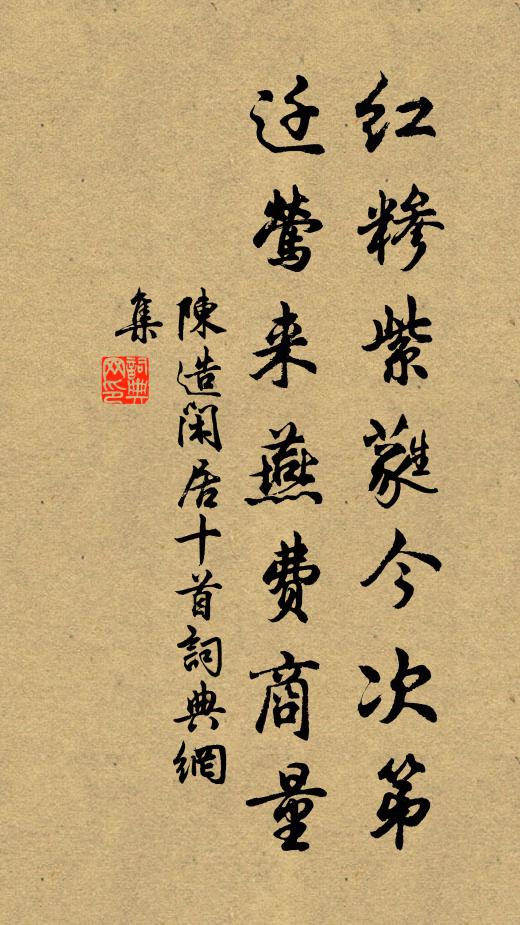 红糁紫蕤今次第
迁莺来燕费商量
陳造閑居十首詞典網
集
詞典
网印